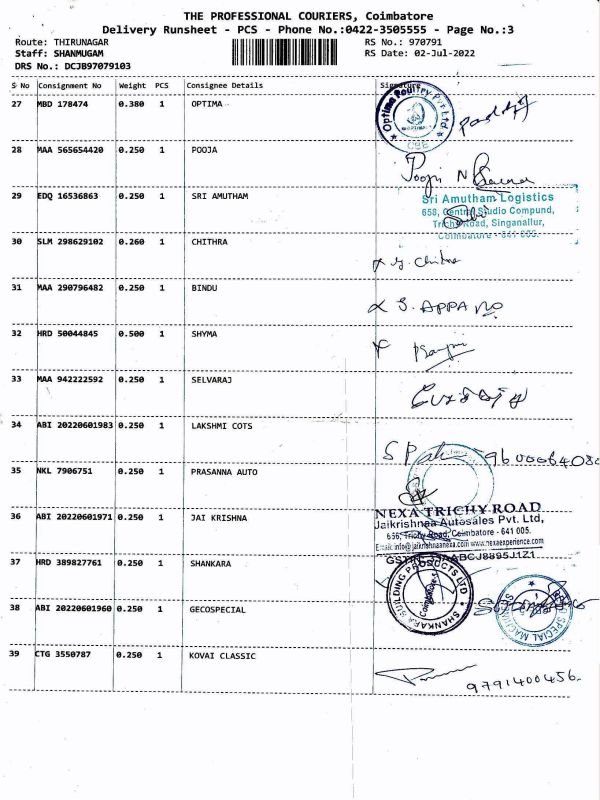 THE PROFESSIONAL COURIERS, Coimbatore
Delivery Runsheet - PCS - Phone No.:0422-3505555 - Page No.:3
Route: THIRUNAGAR RS No.: 970791
Staff: SHANMUGAM RS Date: 02-Jul-2022
DRS No.: DCJB97079103
S No Consignment No Weight PCS Consignee Details Signature
27 MBD 178474 0.380 1 OPTIMA
Optima Poultry Pvt Ltd
OPTIMA
CBE
28 MAA 565654420 0.250 1 POOJA
29 EDQ 16536863 0.250 1 SRI AMUTHAM
Sri Amutham Logistics
658, Central Studio Compund,
Trichy Road, Singanallur,
Coimbatore - 641 005.
30 SLM 298629102 0.260 1 CHITHRA
31 MAA 290796482 0.250 1 BINDU
S. APPA
32 HRD 50044845 0.500 1 SHYMA
33 MAA 942222592 0.250 1 SELVARAJ
34 ABI 20220601983 0.250 1 LAKSHMI COTS
35 NKL 7906751 0.250 1 PRASANNA AUTO
36 ABI 20220601971 0.250 1 JAI KRISHNA
NEXA TRICHY ROAD
Jaikrishnaa Autosales Pvt. Ltd,
Trichy Road, Coimbatore - 641 005.
37 HRD 389827761 0.250 1 SHANKARA
SHANKARA BUILDING PRODUCTS LTD
Coimbatore
38 ABI 20220601960 0.250 1 GECOSPECIAL
39 CTG 3550787 0.250 1 KOVAI CLASSIC
9791400456